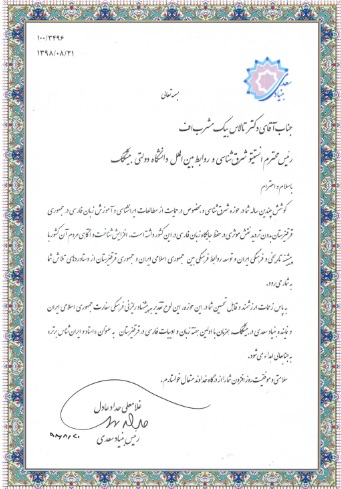 ۱۰۰/۳۴۹۶
۱۳۹۸/۰۸/۲۱
بنیاد سعدی
بسمه تعالی
جناب آقای دکتر تالاس بیک مشرب اف
رئیس محترم انستیتو شرق شناسی و روابط بین الملل دانشگاه دولتی بیشکک
با سلام و احترام
کوشش چندین ساله شما در حوزه شرق شناسی و بخصوص در حمایت از مطالعات ایرانشناسی و آموزش زبان فارسی در جمهوری
قرقیزستان بدون تردید نقش مؤثری در حفظ جایگاه زبان فارسی در این کشور داشته است. افزایش شناخت و آگاهی مردم آن کشور با
پیشینه تاریخی و فرهنگی ایران و توسعه روابط فرهنگی بین جمهوری اسلامی ایران و جمهوری قرقیزستان از دستاوردهای تلاش شما
به شمار می رود.
به پاس زحمات ارزشمند و قابل تحسین شما در این حوزه، این لوح تقدیر به پیشنهاد رایزنی فرهنگی سفارت جمهوری اسلامی ایران
و نماینده بنیاد سعدی در بیشکک، همزمان با اولین هفته زبان و ادبیات فارسی در قرقیزستان به عنوان استاد و ایران شناس برتر
به جنابعالی اهداء می شود.
سلامتی و موفقیت روزافزون شما را از درگاه خداوند متعال خواستارم.
غلامعلی حداد عادل
رئیس بنیاد سعدی